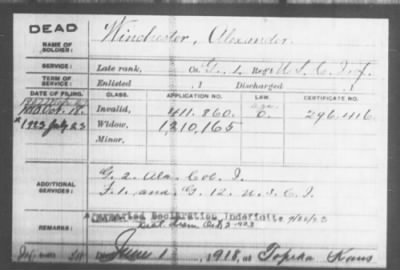 DEAD
NAME OF SOLDIER: Winchester, Alexander
SERVICE: Late rank, Co. G. 1. Reg't U.S.C. Inf.
TERM OF SERVICE: Enlisted , 1 Discharged , 1
DATE OF FILING. CLASS. APPLICATION NO. LAW. CERTIFICATE NO.
Oct. 18. Invalid, 411.860. 0. 296.416
1923 July 23 Widow, 1210,165
Minor,
ADDITIONAL SERVICES: G. 2. Ala. Col. I.
F. 1. and G. 12. U.S.C.I.
REMARKS: Declaration Indefinite
June 1, 1918, at Topeka Kans